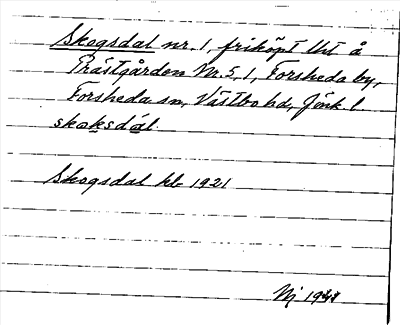 Skogsdal nr. 1, friköpt lht å
Prästgården Nr. 5, 1, Forsheda by,
Forsheda sn, Västbo hd, Jönk l
skoksdál.
Skogsdal kb 1921
Nj